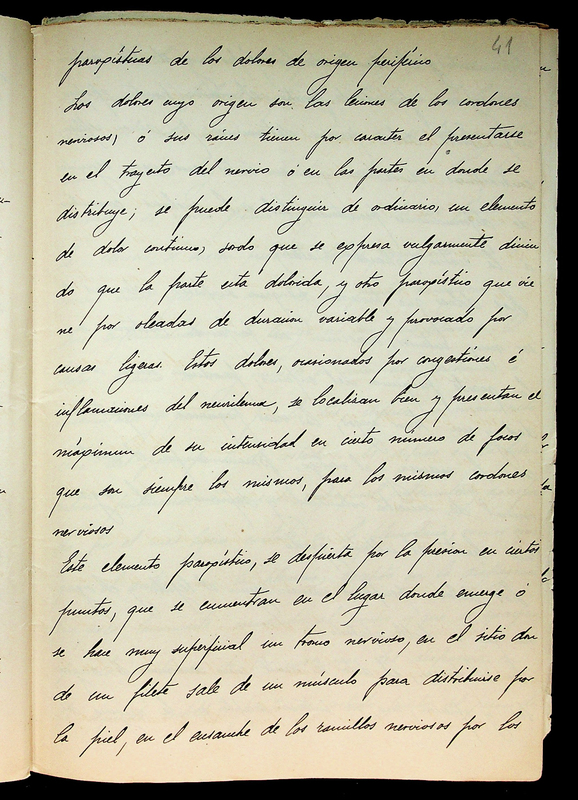 41
paroxísticas de los dolores de origen periférico
Los dolores cuyo origen son las lesiones de los cordones
nerviosos, ó sus raices tienen por caracter el presentarse
en el trayecto del nervio ó en las partes en donde se
distribuye; se puede distinguir de ordinario, un elemento
de dolor continuo, sordo que se expresa vulgarmente dicien
do que la parte esta dolorida, y otro paroxístico que vie
ne por oleadas de duracion variable y provocado por
causas ligeras. Estos dolores, ocasionados por congestiónes é
inflamaciones del neurilema, se localizan bien y presentan el
máximum de su intensidad en cierto numero de focos
que son siempre los mismos, para los mismos cordones
nerviosos
Este elemento paroxístico, se despierta por la presion en ciertos
puntos, que se encuentran en el lugar donde emerge ó
se hace muy superficial un tronco nervioso, en el sitio don
de un filete sale de un músculo para distribuirse por
la piel, en el ensanche de los ramillos nerviosos por los